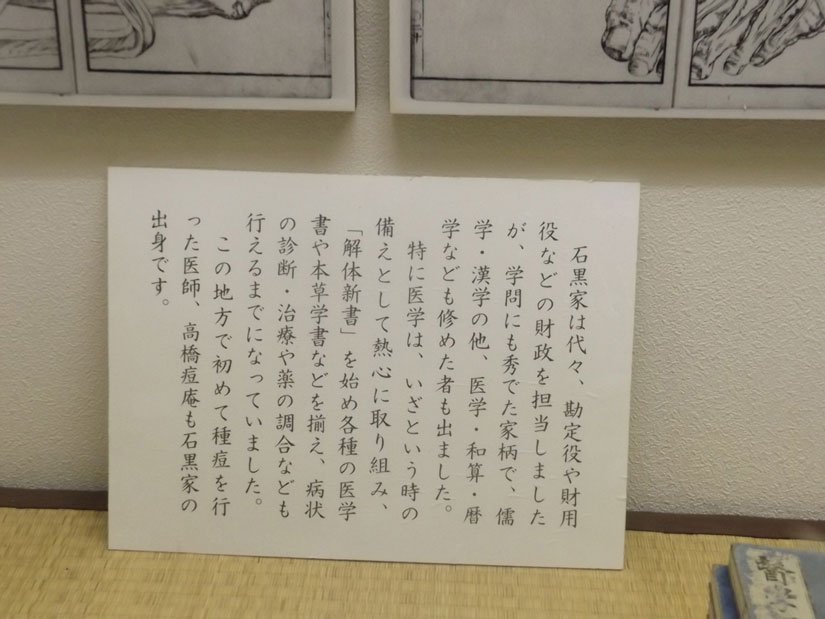 石黒家は代々、勘定役や財用
役などの財政を担当しました
が、学問にも秀でた家柄で、儒
学・漢学の他、医学・和算・暦
学なども修めた者も出ました。
特に医学は、いざという時の
備えとして熱心に取り組み、
「解体新書」を始め各種の医学
書や本草学書などを揃え、病状
の診断・治療や薬の調合なども
行えるまでになっていました。
この地方で初めて種痘を行
った医師、高橋痘庵も石黒家の
出身です。